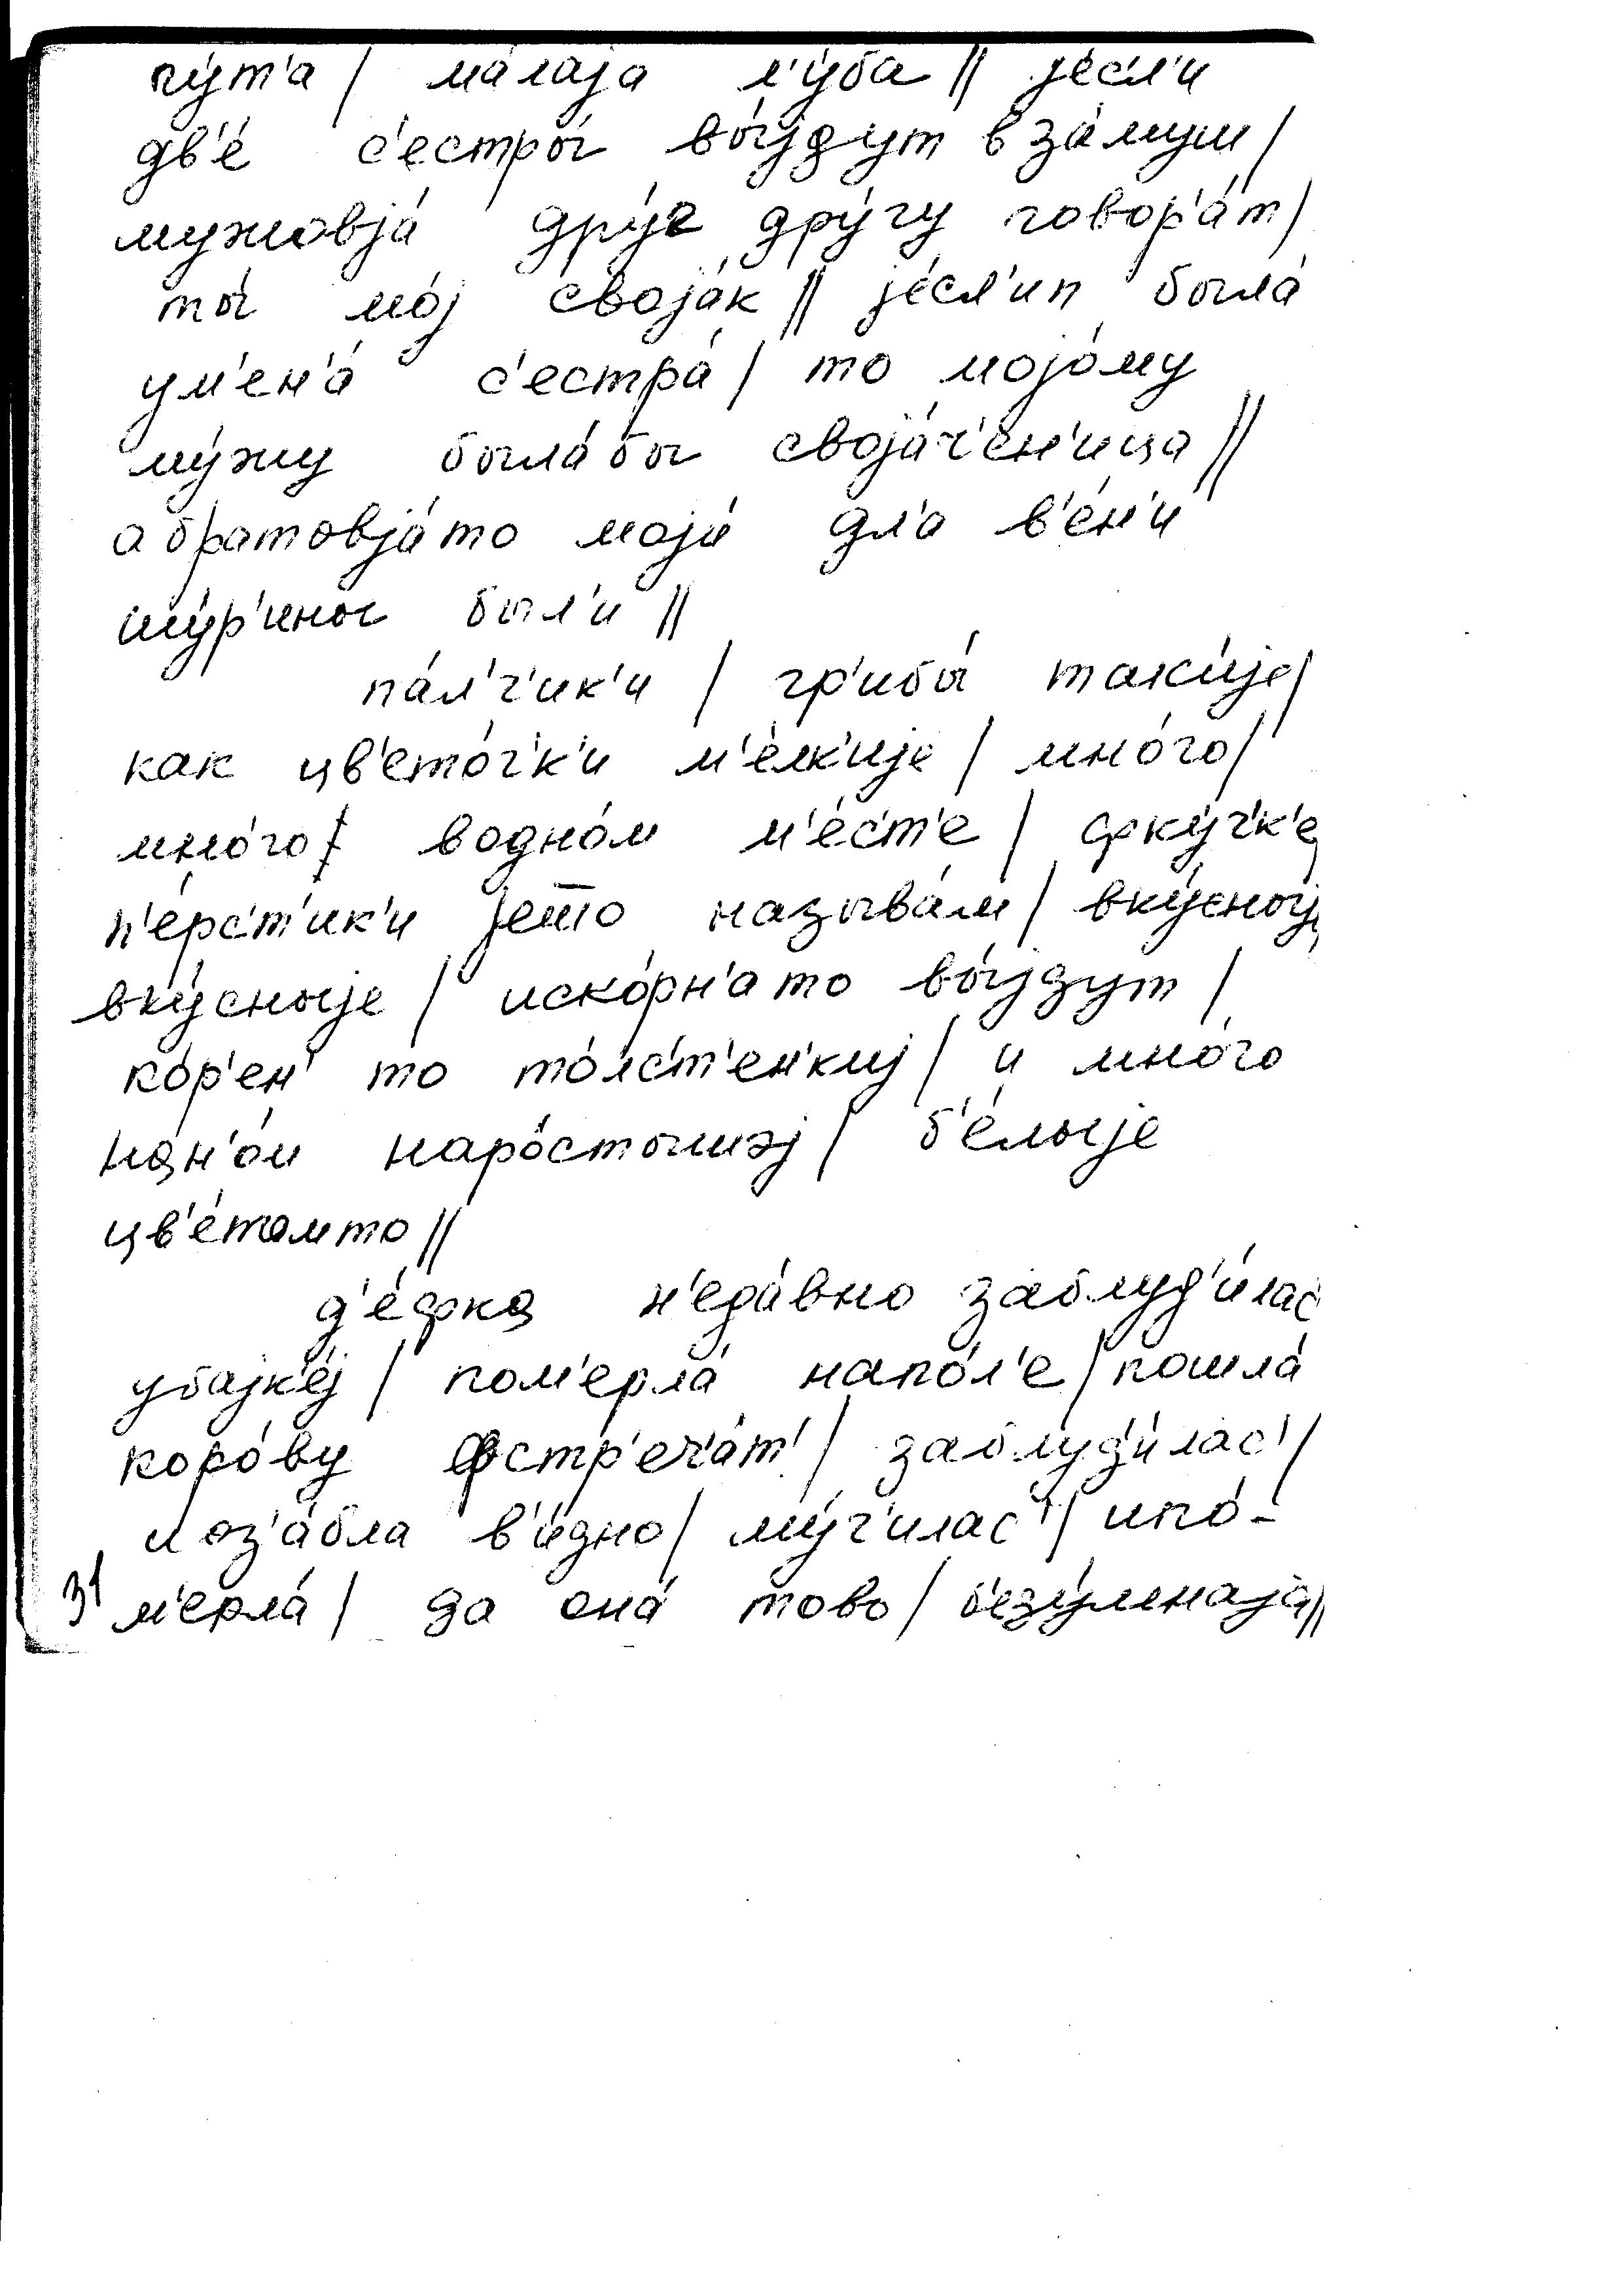 пу́т'а / ма́лаjа л'у́ба // jе́с'л'и
дв'е́ с'естры́ вы́jдут взáмуш /
мужовjá дру́г дру́гу говор'áт /
ты́ мо́j своjáк // jе́сл'ип былá
ум'ен'á с'естрá / то моjо́му
му́жу былáбы своjáч'ен'ица //
а братовjáто моjи́ дл'а в'е́н'и
шу́р'ины был'и //
пáл'ч'ик'и / гр'ибы́ такиjе /
как цв'ето́ч'к'и м'е́лк'иjе / мно́го /
мно́го / водно́м м'е́с'т'е / фку́ч'к'е
п'е́рс'т'ик'и jето назывáм / вку́сныj
вку́сныjе / иско́рн'ато вы́jдут /
ко́р'ен' то то́лс'т'ен'киj / и мно́го
нан'о́м наро́стышэj / б'е́лыjе
цв'е́томто //
д'е́фка н'едáвно заблуд'и́лас'
убаjк'е́j / пом'ерлá напо́л'е / пошлá
коро́ву фстр'еч'áт' / заблуд'и́лас' /
и оз'áбла в'и́дно / му́ч'илас' / ипо́-
м'ерлá / да онá тово / б'езу́мнаjа //
31